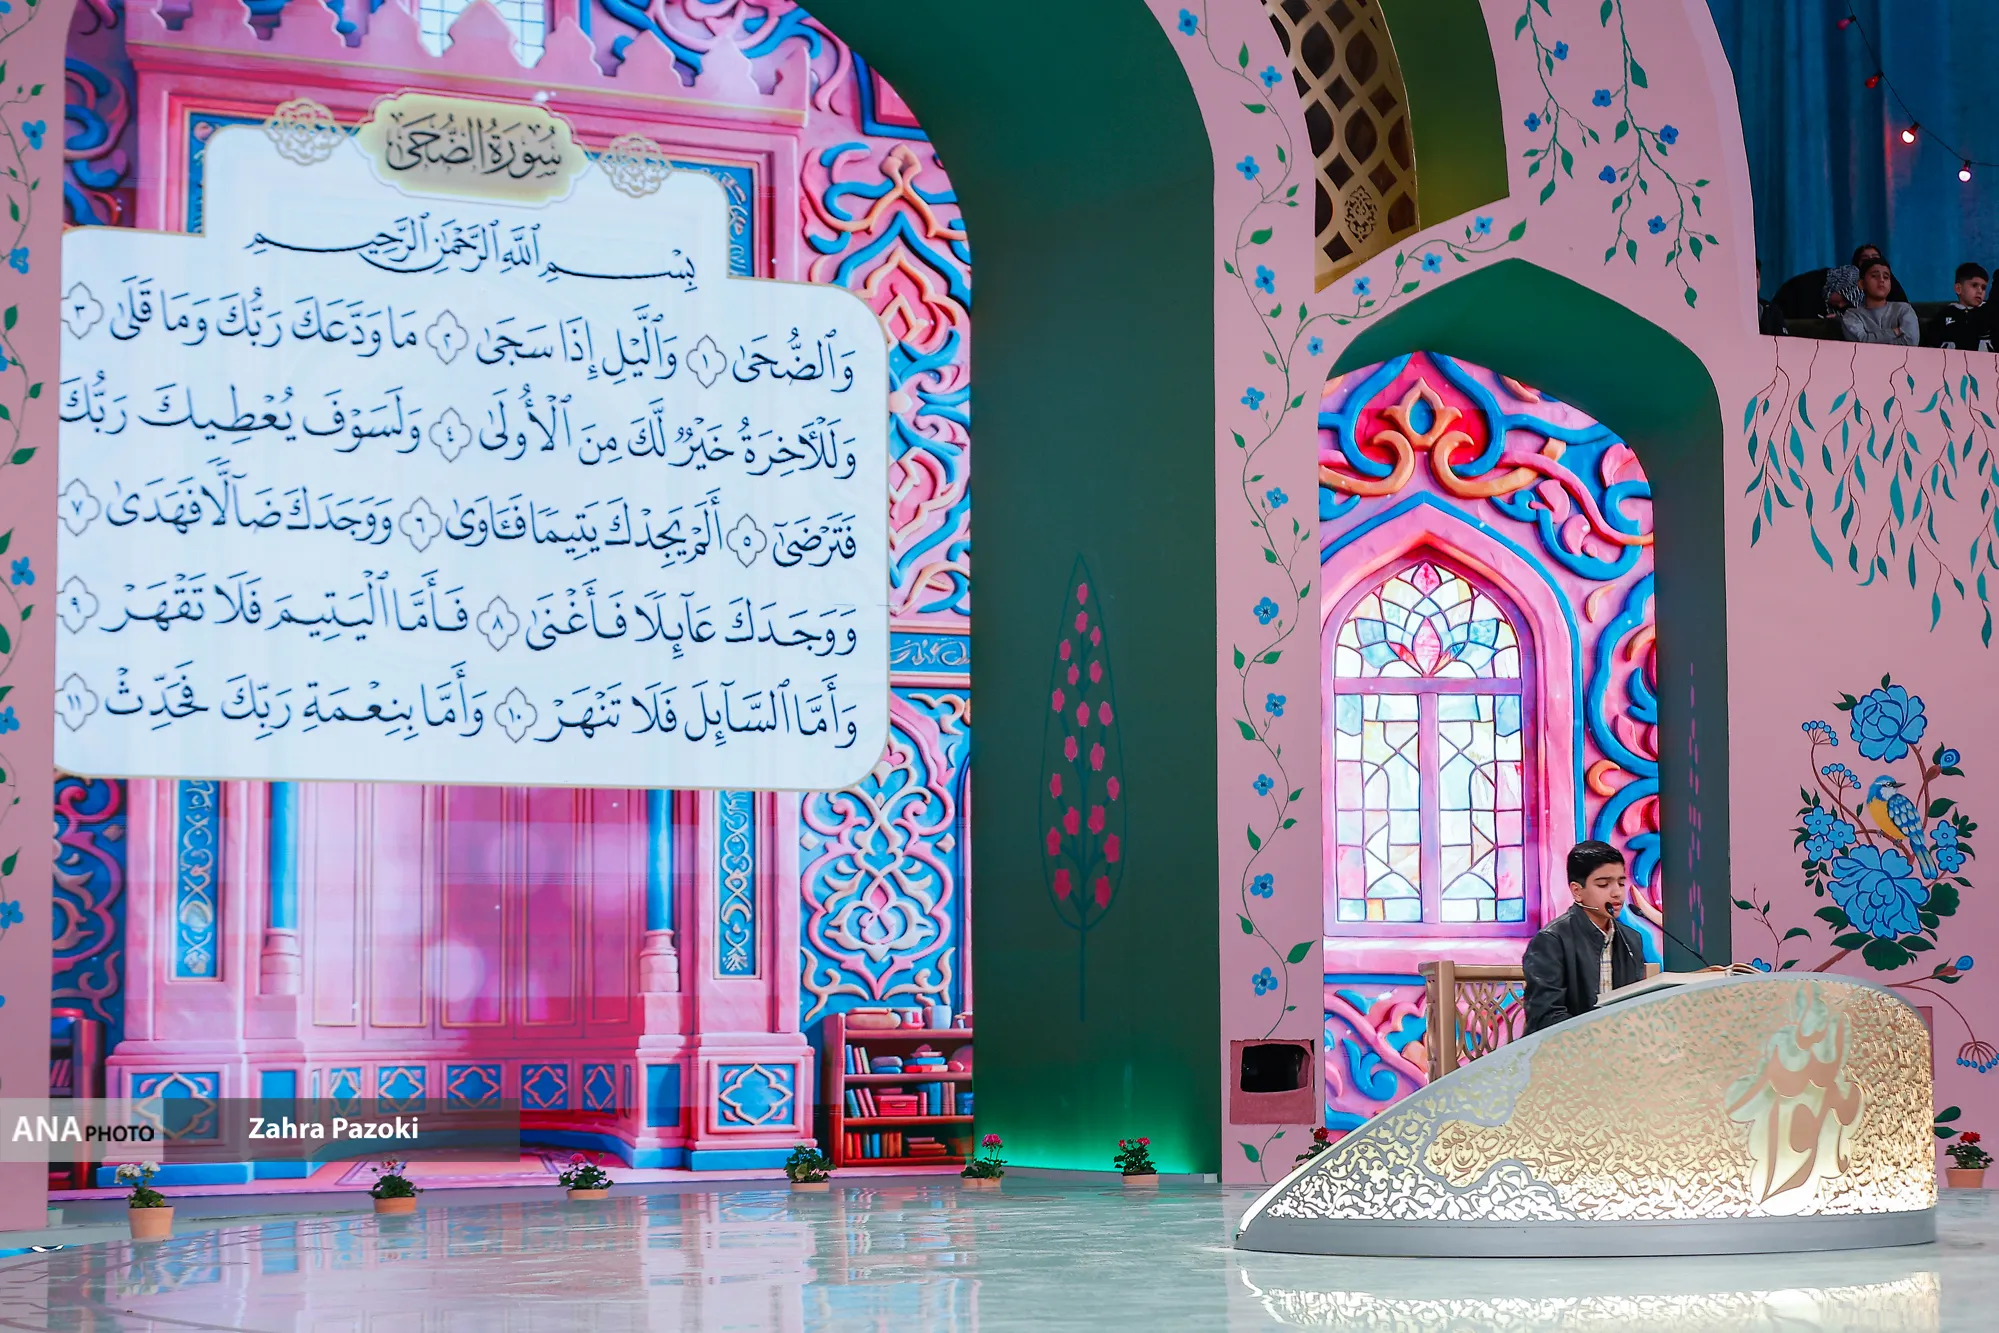 سُورَةُ الضُّحَىٰ
بِسْمِ ٱللَّهِ ٱلرَّحْمَٰنِ ٱلرَّحِيمِ
وَٱلضُّحَىٰ ١ وَٱلَّيْلِ إِذَا سَجَىٰ ٢ مَا وَدَّعَكَ رَبُّكَ وَمَا قَلَىٰ ٣
وَلَلْـَٔاخِرَةُ خَيْرٌ لَّكَ مِنَ ٱلْأُولَىٰ ٤ وَلَسَوْفَ يُعْطِيكَ رَبُّكَ
فَتَرْضَىٰٓ ٥ أَلَمْ يَجِدْكَ يَتِيمًا فَـَٔاوَىٰ ٦ وَوَجَدَكَ ضَآلًّا فَهَدَىٰ ٧
وَوَجَدَكَ عَآئِلًا فَأَغْنَىٰ ٨ فَأَمَّا ٱلْيَتِيمَ فَلَا تَقْهَرْ ٩
وَأَمَّا ٱلسَّآئِلَ فَلَا تَنْهَرْ ١٠ وَأَمَّا بِنِعْمَةِ رَبِّكَ فَحَدِّثْ ١١
هو الله
ANA PHOTO Zahra Pazoki